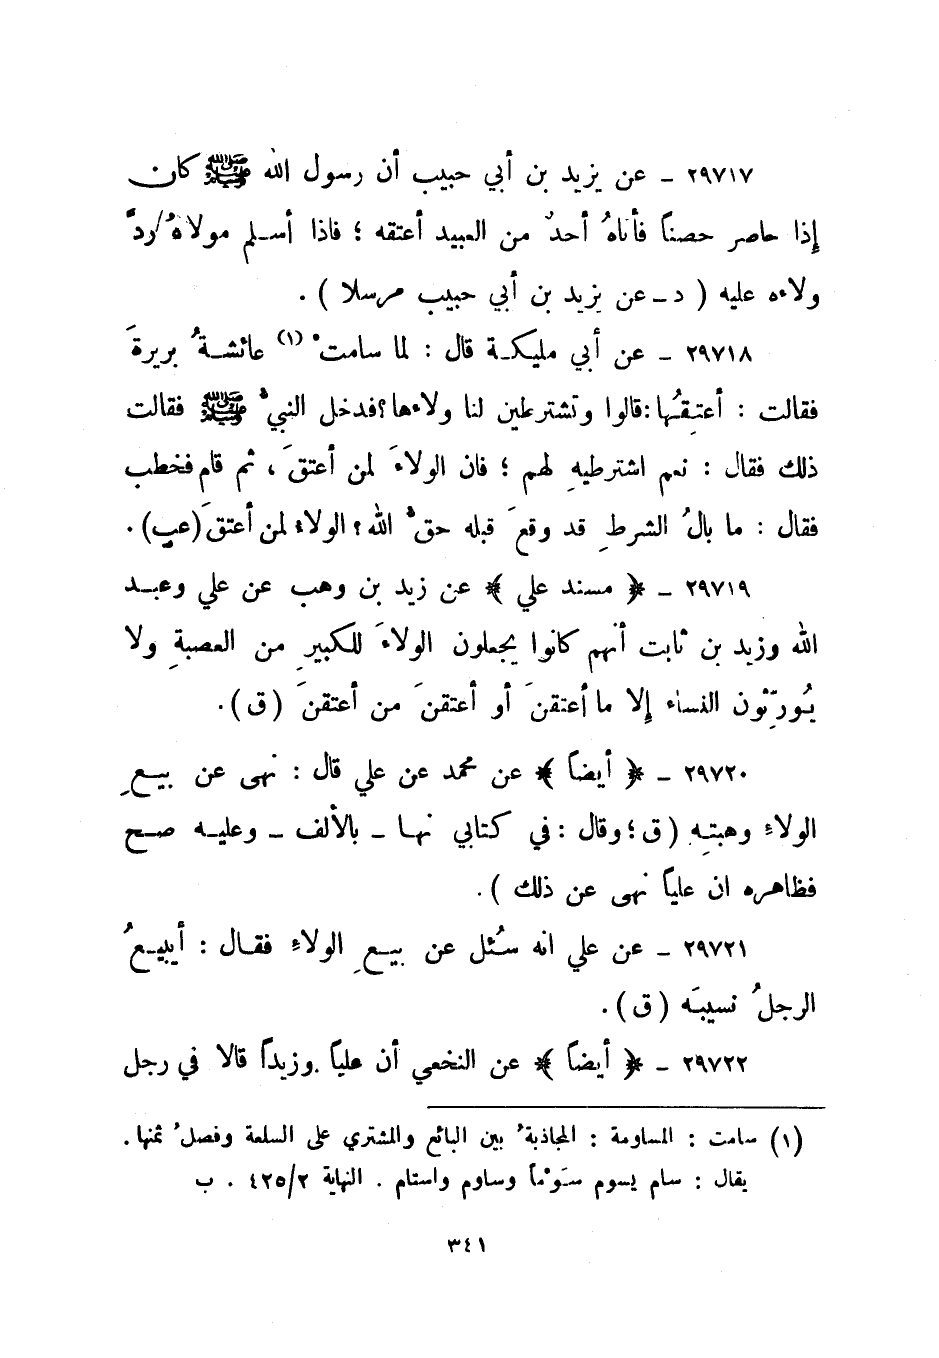 ٢٩٧١٧ ـ عن يزيد بن أبي حبيب أن رسول الله ﷺ كان
إذا حاصر حصناً فأتاهُ أحدٌ من العبيد أعتقه ؛ فاذا أسلم مولاهُ/ردَّ
ولاءه عليه ( د ـ عن يزيد بن أبي حبيب مرسلا ) .
٢٩٧١٨ ـ عن أبي مليكة قال : لما سامتْ (١) عائشةُ بريرةَ
فقالت : أعتِقُها:قالوا وتشترطين لنا ولاءها؟فدخل النبيُّ ﷺ فقالت
ذلك فقال : نعم اشترطيهِ لهم ؛ فان الولاءَ لمن أعتقَ ، ثم قام فخطب
فقال : ما بالُ الشرطِ قد وقعَ قبله حقُّ الله ؟ الولاءُ لمن أعتقَ (عب) .
٢٩٧١٩ ـ ﴿ مسند علي ﴾ عن زيد بن وهب عن علي وعبد
الله وزيد بن ثابت أنهم كانوا يجعلون الولاءَ للكبيرِ من العصبةِ ولا
يُورِّثون النساء إلا ما أعتقنَ أو أعتقنَ من أعتقنَ (ق) .
٢٩٧٢٠ ـ ﴿ أيضاً ﴾ عن محمد عن علي قال : نهى عن بيعِ
الولاءِ وهبتِه (ق ؛ وقال : في كتابي نها ـ بالألف ـ وعليه صح
فظاهره ان علياً نهى عن ذلك ) .
٢٩٧٢١ ـ عن علي انه سُئل عن بيعِ الولاءِ فقال : أيبيعُ
الرجلُ نسيبَه (ق) .
٢٩٧٢٢ ـ ﴿ أيضاً ﴾ عن النخعي أن علياً وزيداً قالا في رجل
(١) سامت : المساومة : المجاذبةُ بين البائع والمشتري على السلعة وفصلُ ثمنها .
يقال : سام يسوم سَوْماً وساوم واستام . النهاية ٤٢٥/٢ . ب
٣٤١